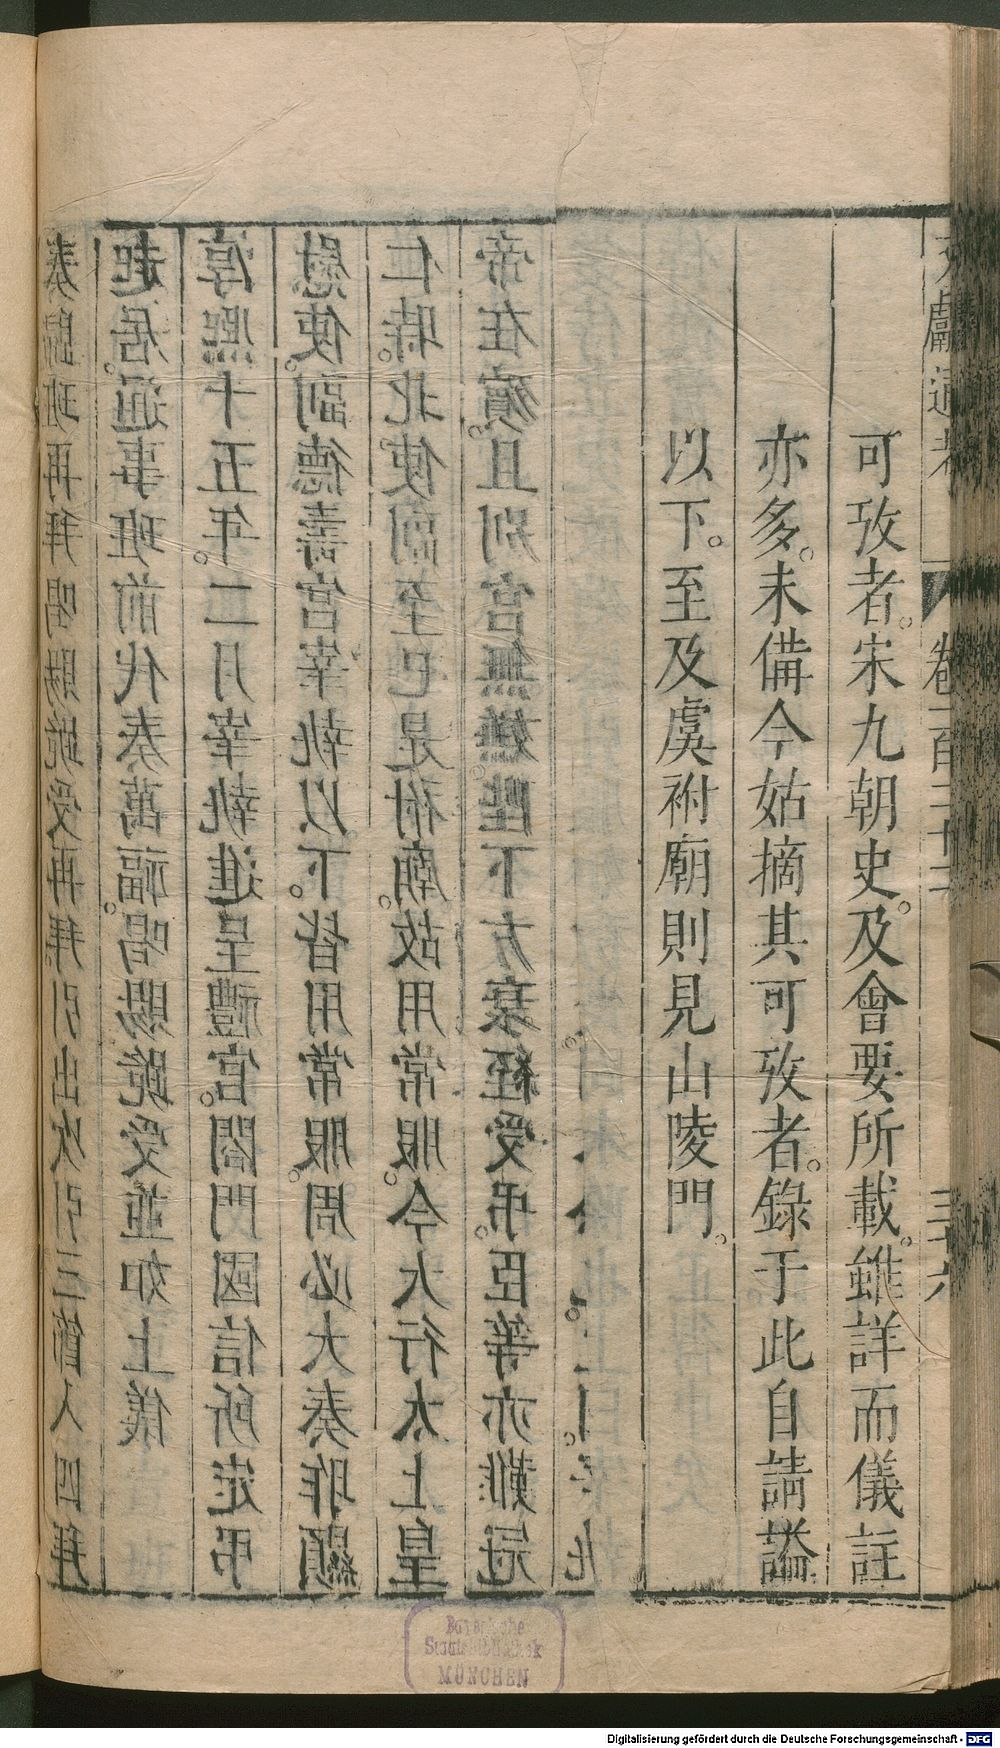 文獻通考 卷一百二十二 三十六
可攷者。宋九朝史。及會要所載。雖詳而儀註
亦多。未備今姑摘其可攷者。錄于此自請謚
以下。至及虞祔廟則見山陵門。
班再拜喝賜跪受再拜引出次引三節人四拜
起居。通事班前代奏萬福。喝賜跪受並如上儀
淳熙十五年。二月宰執進呈禮官。閤門國信所定弔
慰使。副德壽宮宰執以下。皆用常服。周必大奏昨顯
仁時。北使副至已是祔廟。故用常服。今大行太上皇
帝在殯。且別宮無嫌。陛下方衰絰受弔。臣等亦難冠
Bayerische
Staatsbibliothek
MÜNCHEN
Digitalisierung gefördert durch die Deutsche Forschungsgemeinschaft - DFG